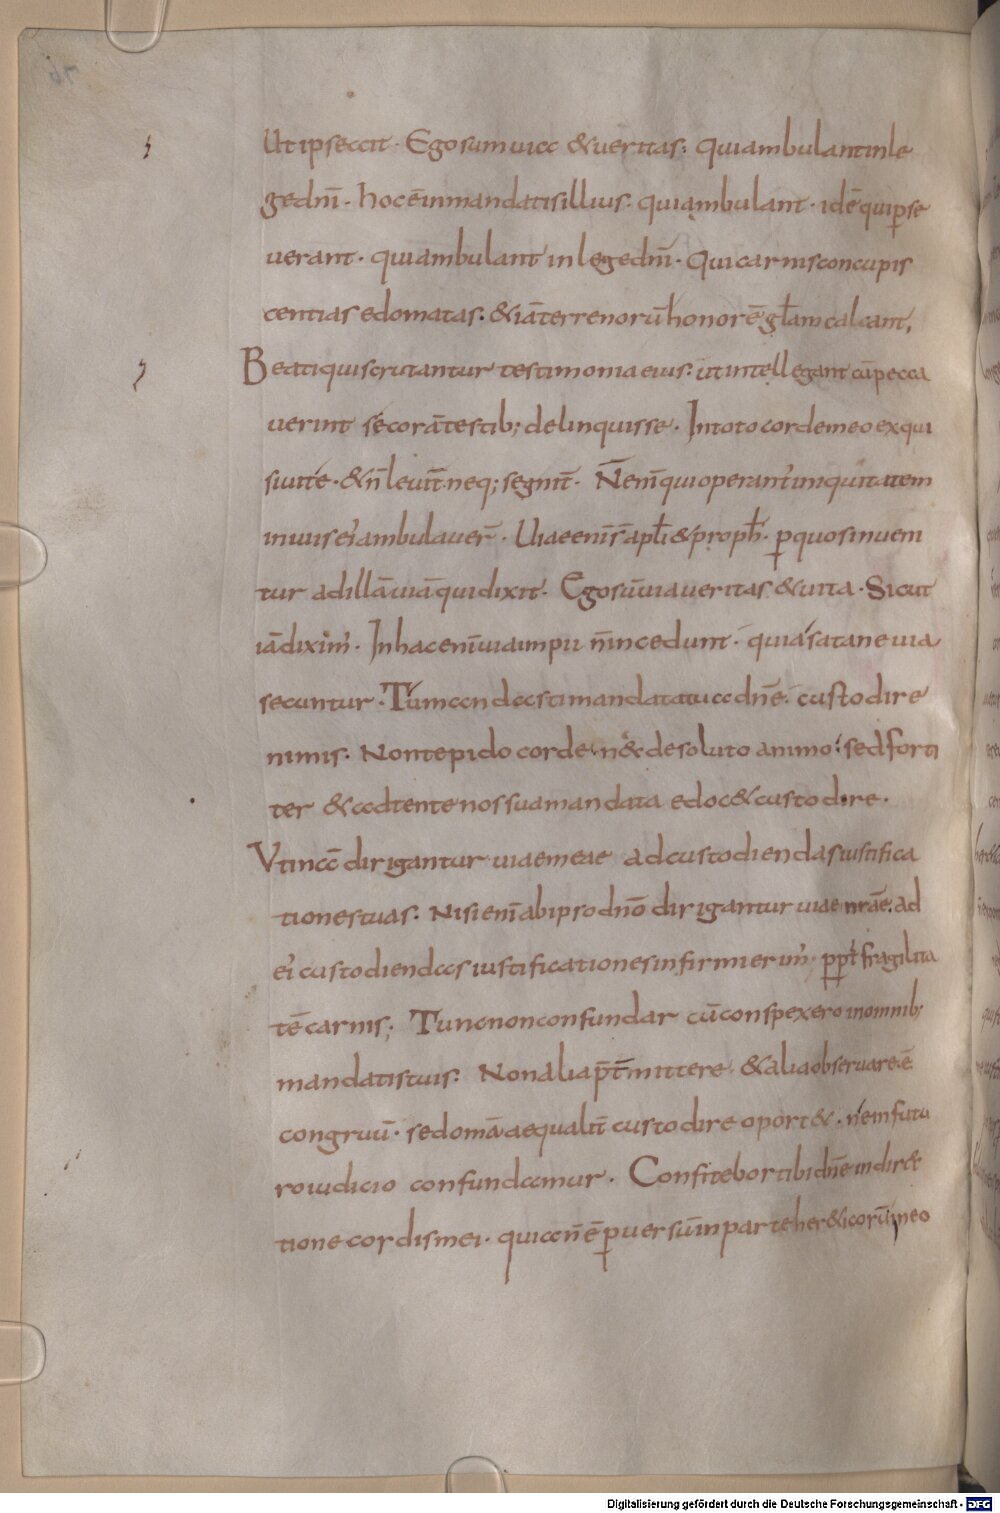 Ut ipse ait · Ego sum uia & ueritas · qui ambulant in le
ge dnī · hoc ē in mandatis illius · qui ambulant · idē qui perse
uerant · qui ambulant in lege dnī · Qui carnis concupis
centias edomatas · & iā terrenorū honorē gľam calcant,
Beati qui scrutantur testimonia eius · ut intellegant cū pecca
uerint se corā testib; delinquisse · In toto corde meo exqui
siui te · & n̄ leuit̄ neq; segnit̄ · N̄ enī qui operant᷑ iniquitatem
in uiis ei᷒ ambulauer̄ · Uiae enī s̄ apłi & proph̄ · p̱ quos inueni
tur ad illā uiā qui dixit · Ego sū uia ueritas & uita · Sicut
iā dixim᷒ · In hac enī uia impii n̄ incedunt · quia satane uia
secuntur · Tu mandasti mandata tua dnē · custodire
nimis · Non tepido corde · n̄ & desoluto animo · sed forti
ter & adtente nos sua mandata edoc& custodire ·
Vtinā dirigantur uiae meae ad custodiendas iustifica
tiones tuas · Nisi enī ab ipso dnō dirigantur uiae nrāe · ad
ei᷒ custodiendas iustificationes infirmi erim᷒ · ppť fragilita
tē carnis; Tunc non confundar cū conspexero in omnib;
mandatis tuis · Non alia p̄t̄mittere · & alia obseruare ē
congruū · sed omā aequalit̄ custodire oport& · n̄ e in futu
ro iudicio confundamur · Confitebor tibi dnē in dir&
tione cordis mei · quia n̄ ē p̱uersū in parte her&icorū meo